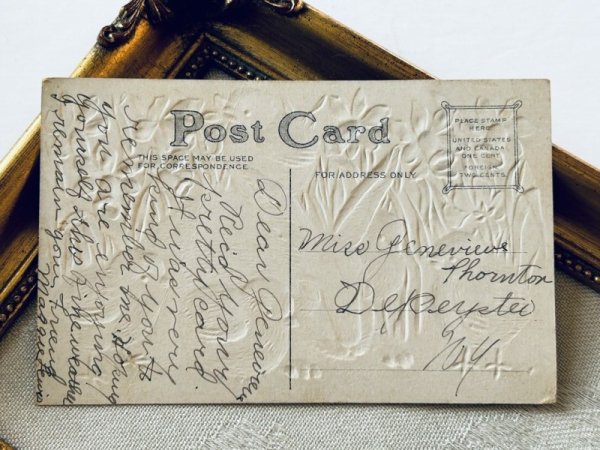 Post Card
THIS SPACE MAY BE USED
FOR CORRESPONDENCE
FOR ADDRESS ONLY
PLACE STAMP
HERE
UNITED STATES
AND CANADA
ONE CENT
FOREIGN
TWO CENTS
Dear Genevieve
Rec'd your
pretty card
I was very
glad to
remember me. Hoping
you are enjoying
yourself this fine weather
I remain your friend
Miss Genevieve
Thornton
DePeyster
N.Y.